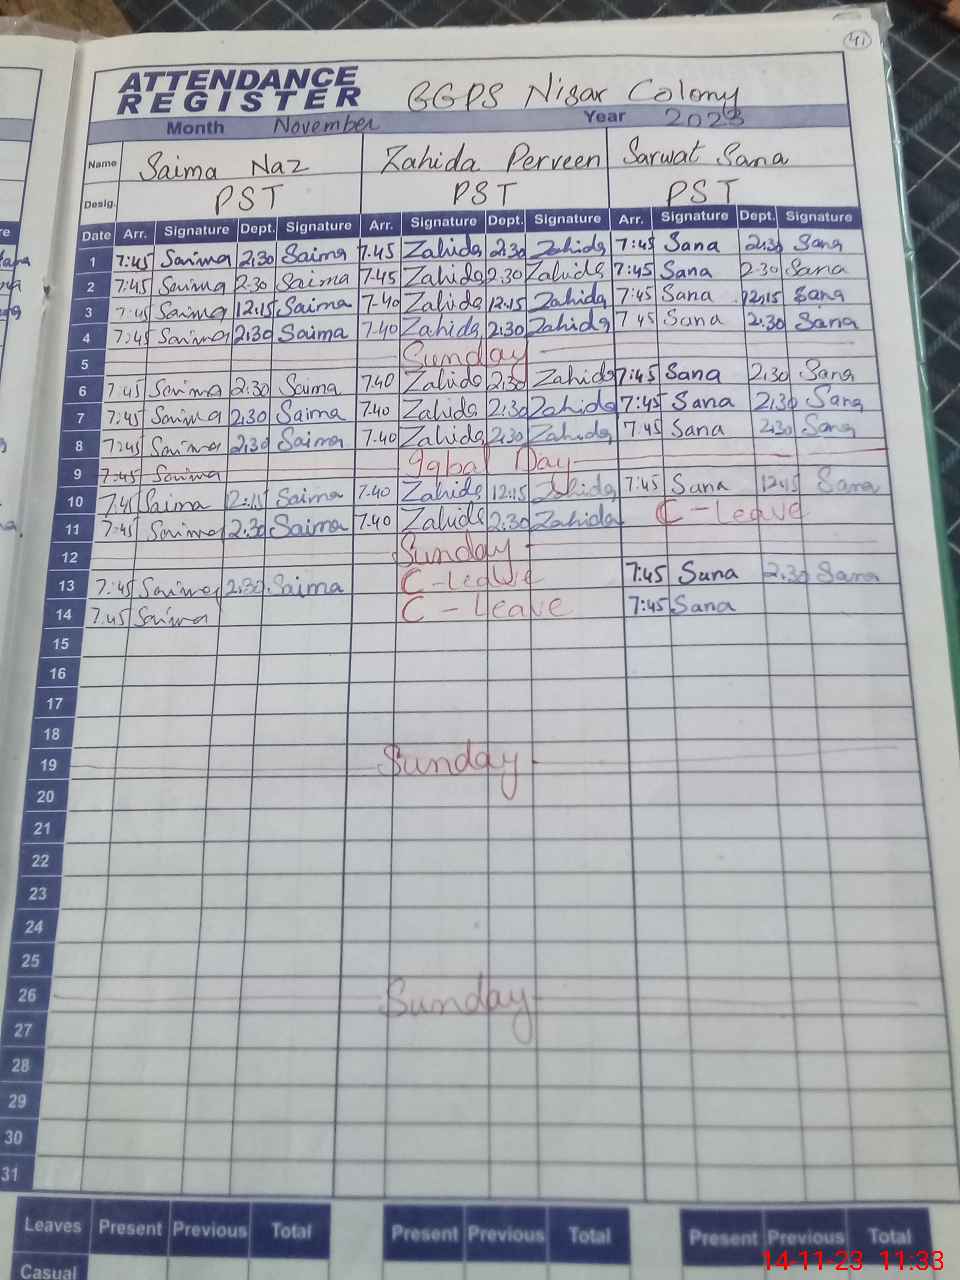 41
ATTENDANCE
REGISTER GGPS Nisar Colony
Month November Year 2023
Name Saima Naz Zahida Perveen Sarwat Sana
Desig. PST PST PST
Date Arr. Signature Dept. Signature Arr. Signature Dept. Signature Arr. Signature Dept. Signature
1 7:45 Saima 2:30 Saima 7.45 Zahida 2:30 Zahida 7:45 Sana 2:30 Sana
2 7:45 Saima 2-30 Saima 7-45 Zahida 2.30 Zahida 7:45 Sana 2-30 Sana
3 7:45 Saima 12:15 Saima 7-40 Zahida 12.15 Zahida 7:45 Sana 12:15 Sana
4 7:45 Saima 2:30 Saima 7.40 Zahida 2:30 Zahida 7 45 Sana 2:30 Sana
5 Sunday
6 7:45 Saima 2:30 Saima 7.40 Zahida 2:30 Zahida 7:45 Sana 2:30 Sana
7 7:45 Saima 2:30 Saima 7.40 Zahida 2:30 Zahida 7:45 Sana 2:30 Sana
8 7:45 Saima 2:30 Saima 7.40 Zahida 2:30 Zahida 7:45 Sana 2:30 Sana
9 7:45 Saima Iqbal Day
10 7:45 Saima 12:15 Saima 7.40 Zahida 12:15 Zahida 7:45 Sana 12:15 Sana
11 7:45 Saima 2:30 Saima 7.40 Zahida 2:30 Zahida C - Leave
12 Sunday
13 7:45 Saima 2:30 Saima C - Leave 7:45 Sana 2:30 Sana
14 7:45 Saima C - Leave 7:45 Sana
15
16
17
18
19 Sunday
20
21
22
23
24
25
26 Sunday
27
28
29
30
31
Leaves Present Previous Total Present Previous Total Present Previous Total
Casual
14-11-23 11:33